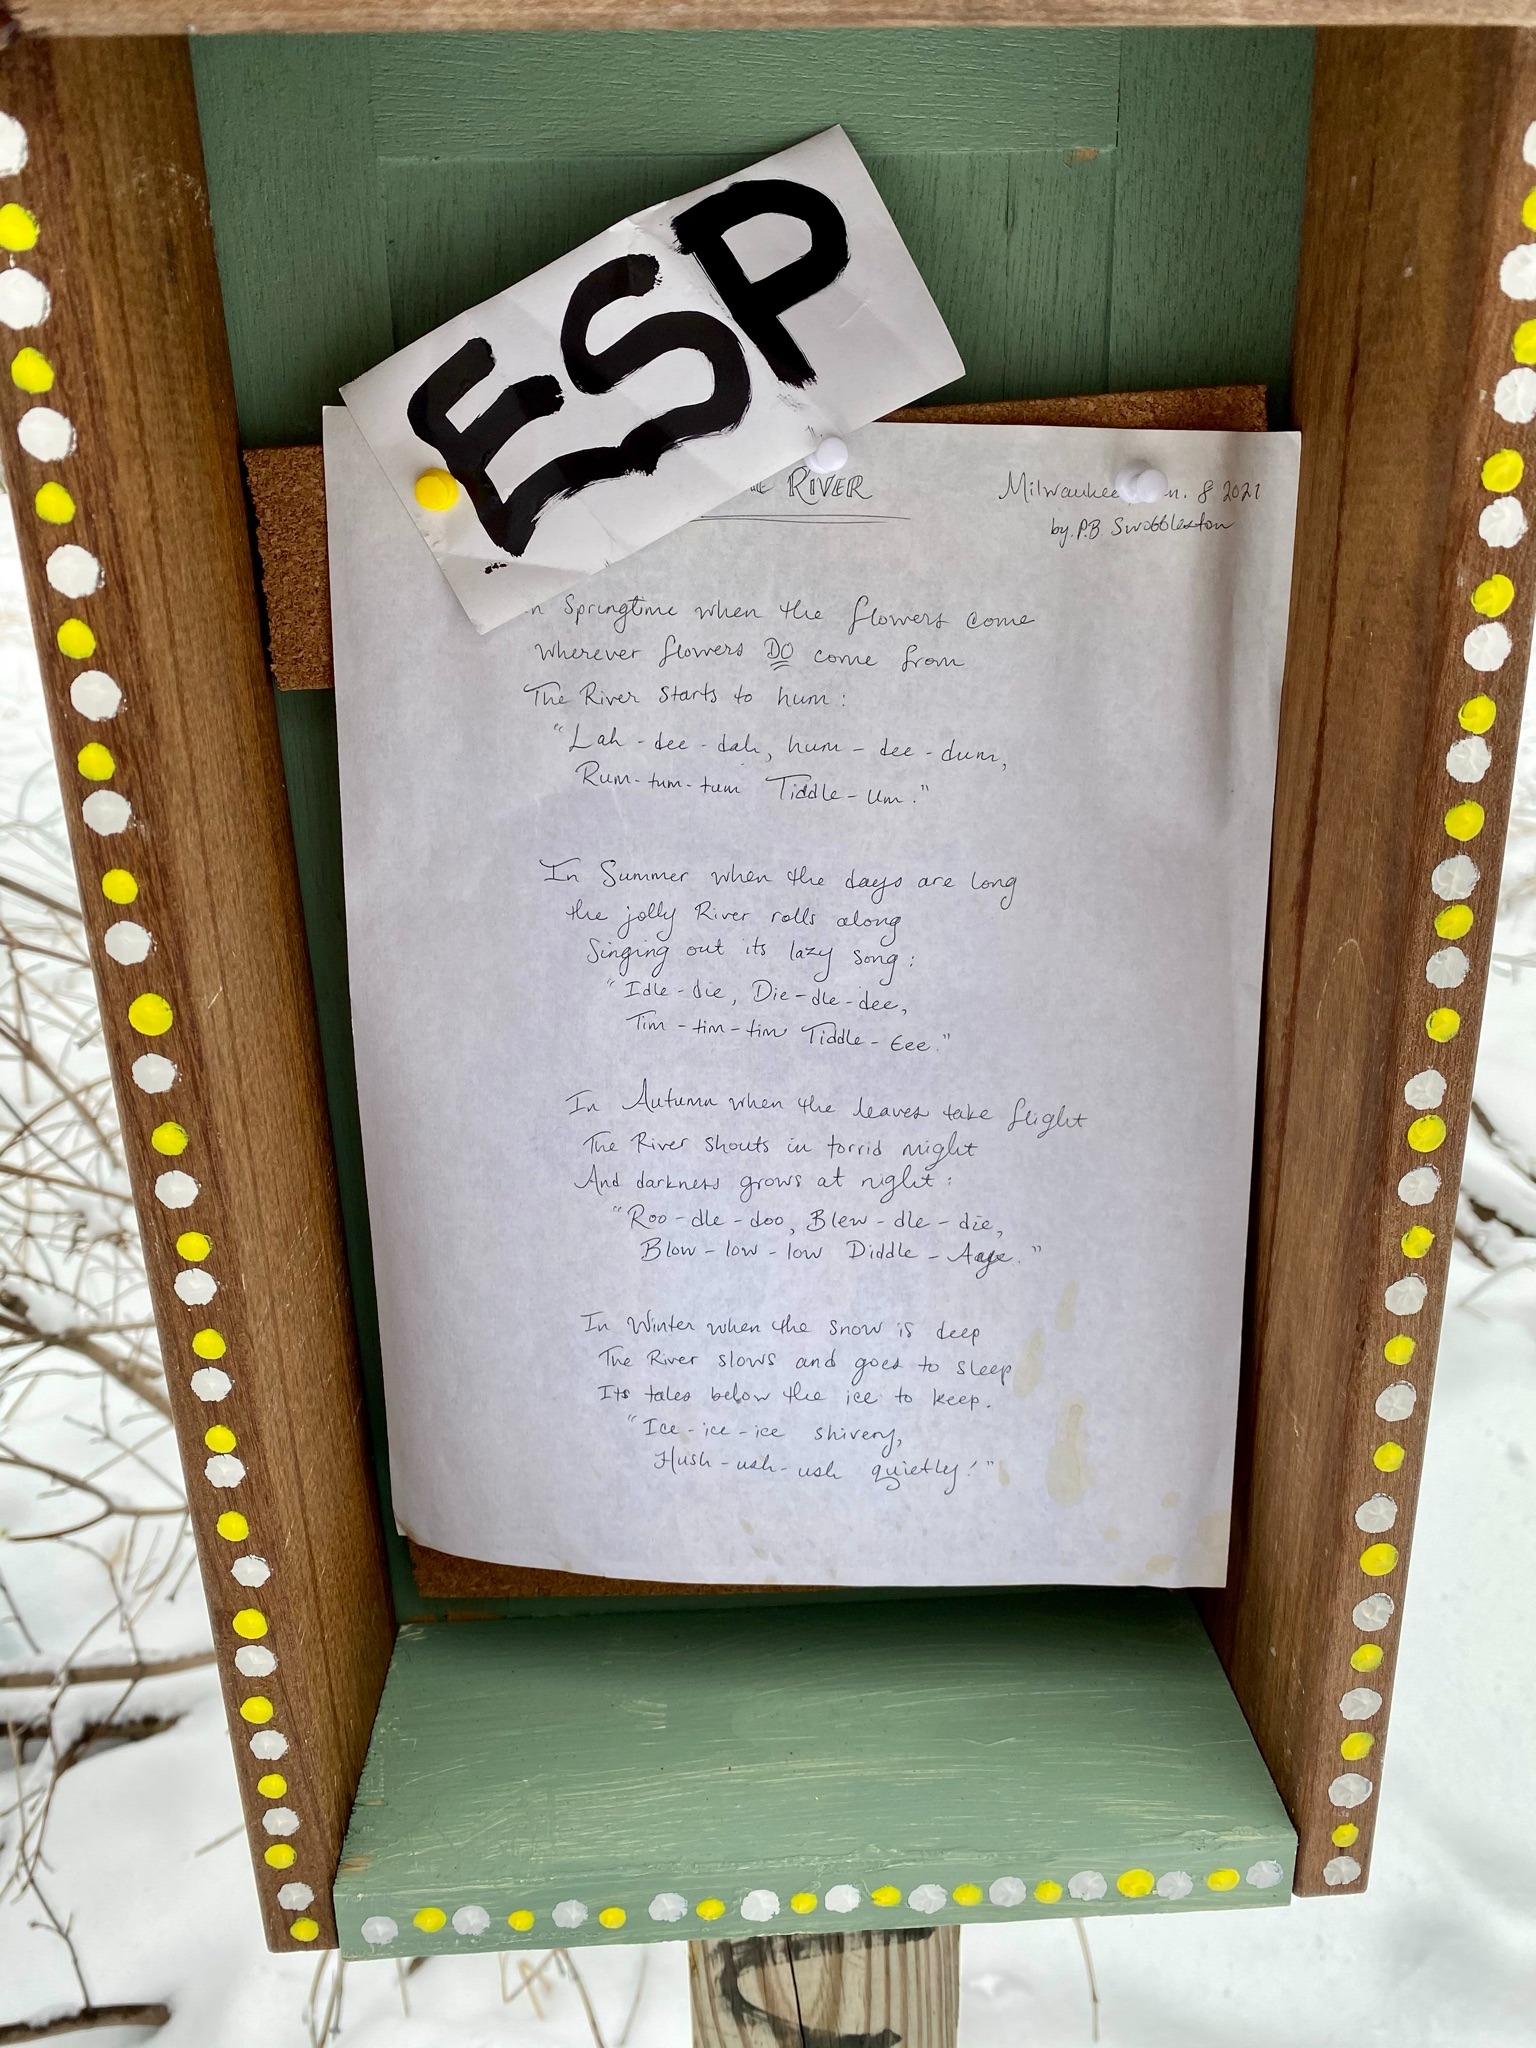 ESP
RIVER
Milwaukee, n. 8 2021
by P.B. Swobbleston
n Springtime when the flowers come
wherever flowers DO come from
The River starts to hum:
"Lah-dee-dah, hum-dee-dum,
Rum-tum-tum Tiddle-Um."
In Summer when the days are long
the jolly River rolls along
Singing out its lazy song:
"Idle-die, Die-dle-dee,
Tim-tim-tim Tiddle-Eee."
In Autumn when the leaves take flight
The River shouts in torrid might
And darkness grows at night:
"Roo-dle-doo, Blew-dle-die,
Blow-low-low Diddle-Aaye."
In Winter when the snow is deep
The River slows and goes to sleep
Its tales below the ice to keep.
"Ice-ice-ice shivery,
Hush-ush-ush quietly!"